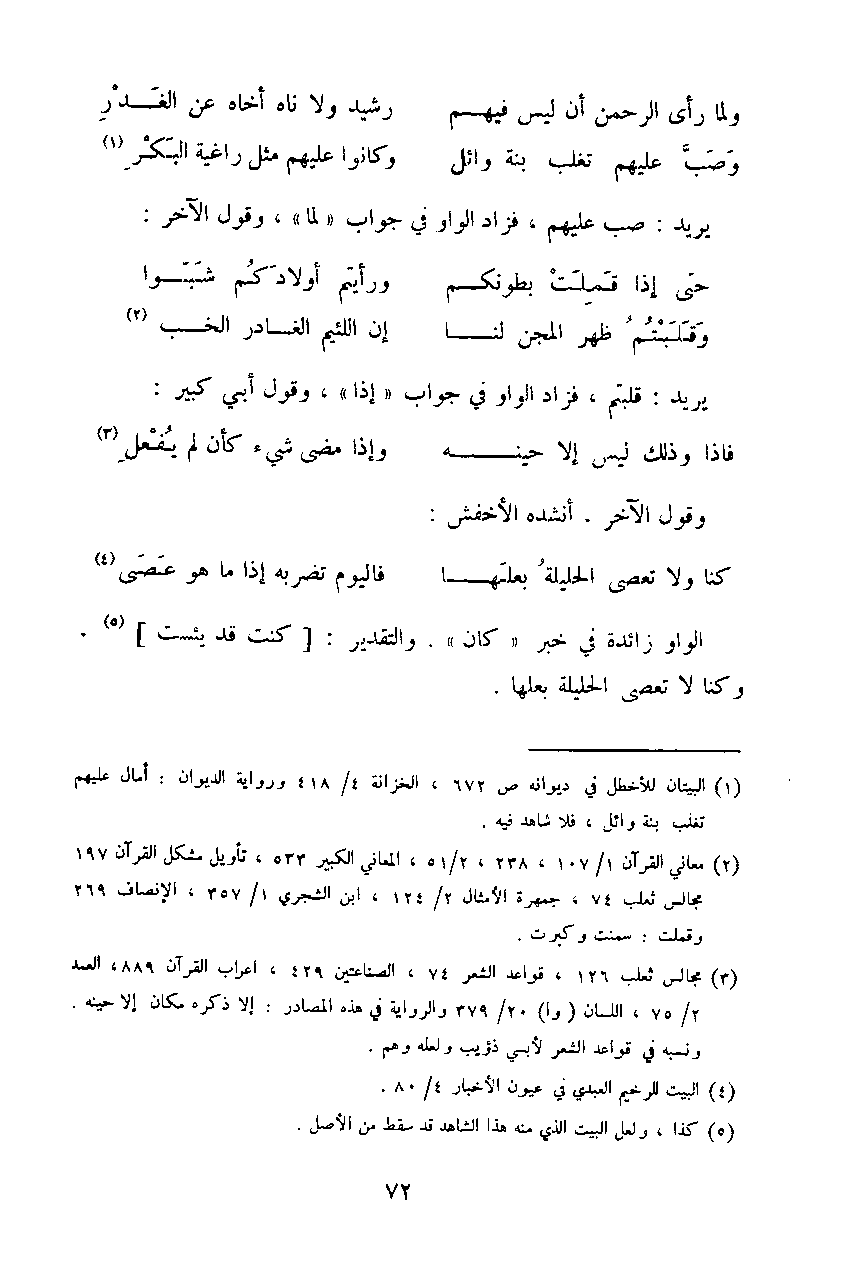 ولما رأى الرحمن أن ليس فيهـــم رشيد ولا ناه أخاه عن الغَـــدْرِ
وَصَبَّ عليهم تغلب بنة وائل وكانوا عليهم مثل راغية البَكْرِ (١)
يريد : صب عليهم ، فزاد الواو في جواب « لما » ، وقول الآخر :
حتى إذا قَـمِـلَـتْ بطونكـــم ورأيتم أولادَكُم شَبّـــوا
وَقَـلَـبْتُمُ ظهر المجن لنـــا إن اللئيم الغـادر الخـــب (٢)
يريد : قلبتم ، فزاد الواو في جواب « إذا » ، وقول أبي كبير :
فاذا وذلك ليس إلا حينـــــه وإذا مضى شيء كأن لم يُفْعلِ (٣)
وقول الآخر . أنشده الأخفش :
كنا ولا تعصى الحليلةُ بعلَهـــا فاليوم تضربه إذا ما هو عَصَى (٤)
الواو زائدة في خبر « كان » . والتقدير : [ كنت قد يئست ] (٥) .
وكنا لا تعصى الحليلة بعلها .
(١) البيتان للأخطل في ديوانه ص ٦٧٢ ، الخزانة ٤/ ٤١٨ ورواية الديوان : أمال عليهم
تغلب بنة وائل ، فلا شاهد فيه .
(٢) معاني القرآن ١/ ١٠٧ ، ٢٣٨ ، ٥١/٢ ، المعاني الكبير ٥٣٣ ، تأويل مشكل القرآن ١٩٧
مجالس ثعلب ٧٤ ، جمهرة الأمثال ٢/ ١٢٤ ، ابن الشجري ١/ ٣٥٧ ، الإنصاف ٢٦٩
وقملت : سمنت وكبرت .
(٣) مجالس ثعلب ١٢٦ ، قواعد الشعر ٧٤ ، الصناعتين ٤٢٩ ، اعراب القرآن ٨٨٩، العمد
٢/ ٧٥ ، اللسان ( وا) ٢٠/ ٣٧٩ والرواية في هذه المصادر : إلا ذكره مكان إلا حينه .
ونسبه في قواعد الشعر لأبي ذؤيب ولعله وهم .
(٤) البيت للرخيم العبدي في عيون الأخبار ٤/ ٨٠ .
(٥) كذا ، ولعل البيت الذي منه هذا الشاهد قد سقط من الأصل .
٧٢